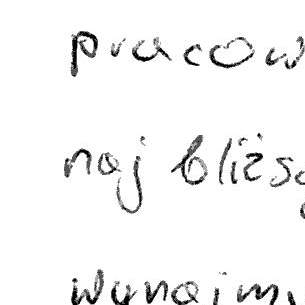 pracow
naj bliższ
wynajm